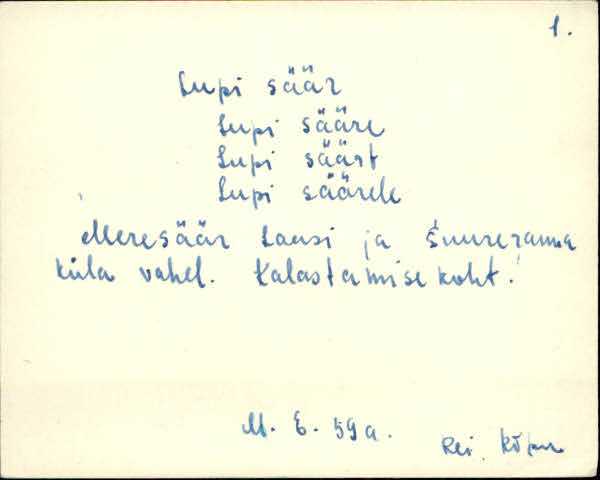 1.
Lupi säär
Lupi sääre
Lupi säärt
Lupi säärele
Meresäär Laasi ja Suureranna
küla vahel. Kalastamise koht.
M. E. 59a.
Rei. Kõpu